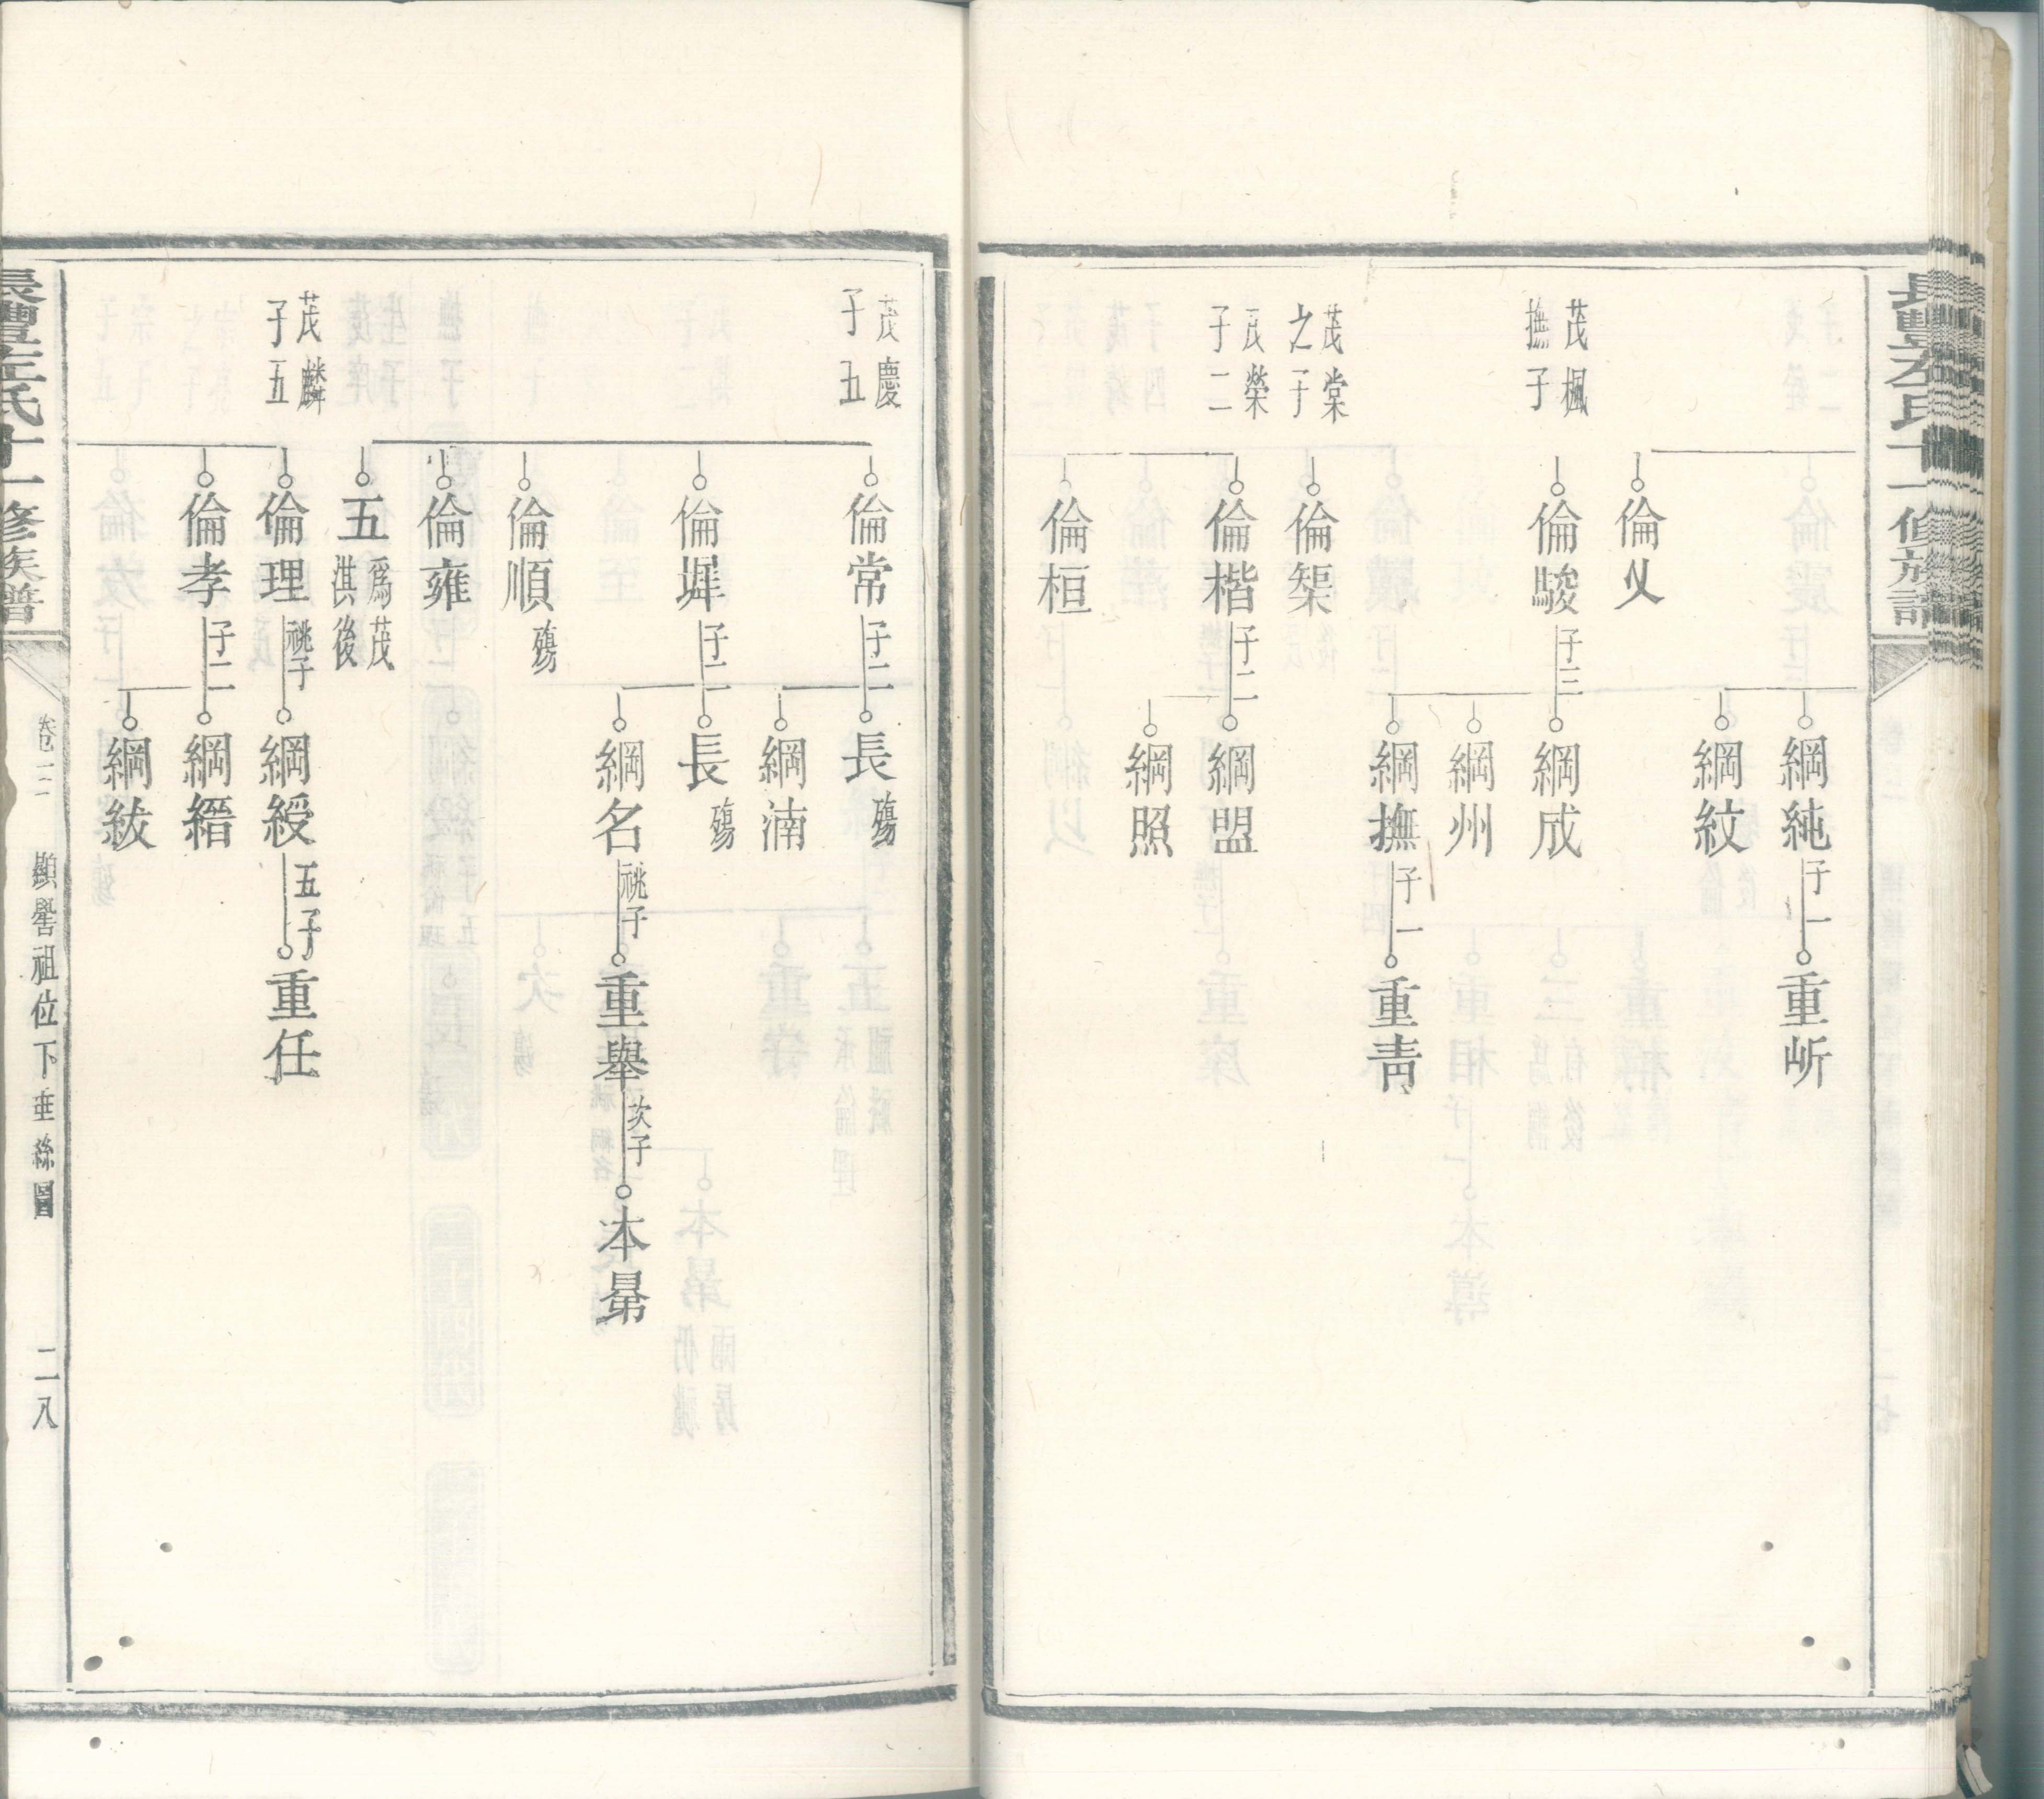 長豐左氏十一修族譜
綱純 子一 重岓
綱紋
倫乂
茂楓
撫子
倫駿 子三 綱成
綱州
綱撫 子一 重青
茂棠
之子
倫榘
茂榮
子二
倫楷 子二 綱盟
綱照
倫桓
茂慶
子五
倫常 子二 長 殤
綱湳
倫墀 子二 長 殤
綱名 祧子 重舉 次子 本㬎
倫順 殤
倫雍
五 爲茂
淇後
茂麟
子五
倫理 祧子 綱綬 五子 重任
倫孝 子二 綱縉
綱紱
長豐左氏十一修族譜
卷二 顯譽祖位下垂絲圖 二八